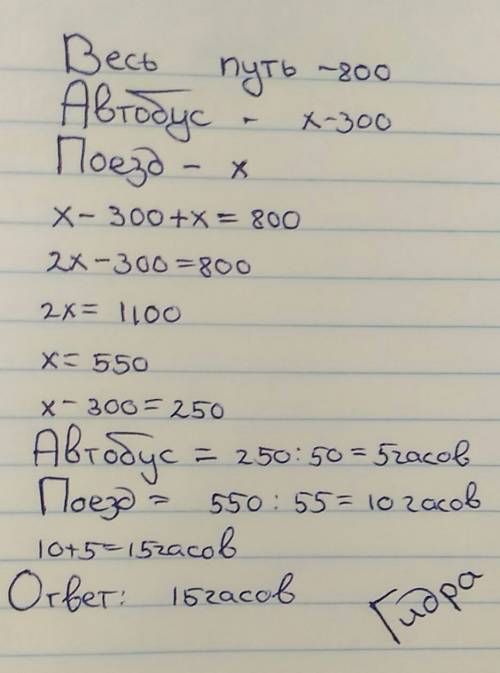 Весь путь -800
Автобус - x-300
Поезд - x
x - 300+x = 800
2x-300=800
2x= 1100
x= 550
x-300=250
Автобус = 250:50=5часов
Поезд = 550 : 55= 10 часов
10+5=15часов
Ответ: 15часов
Гидра